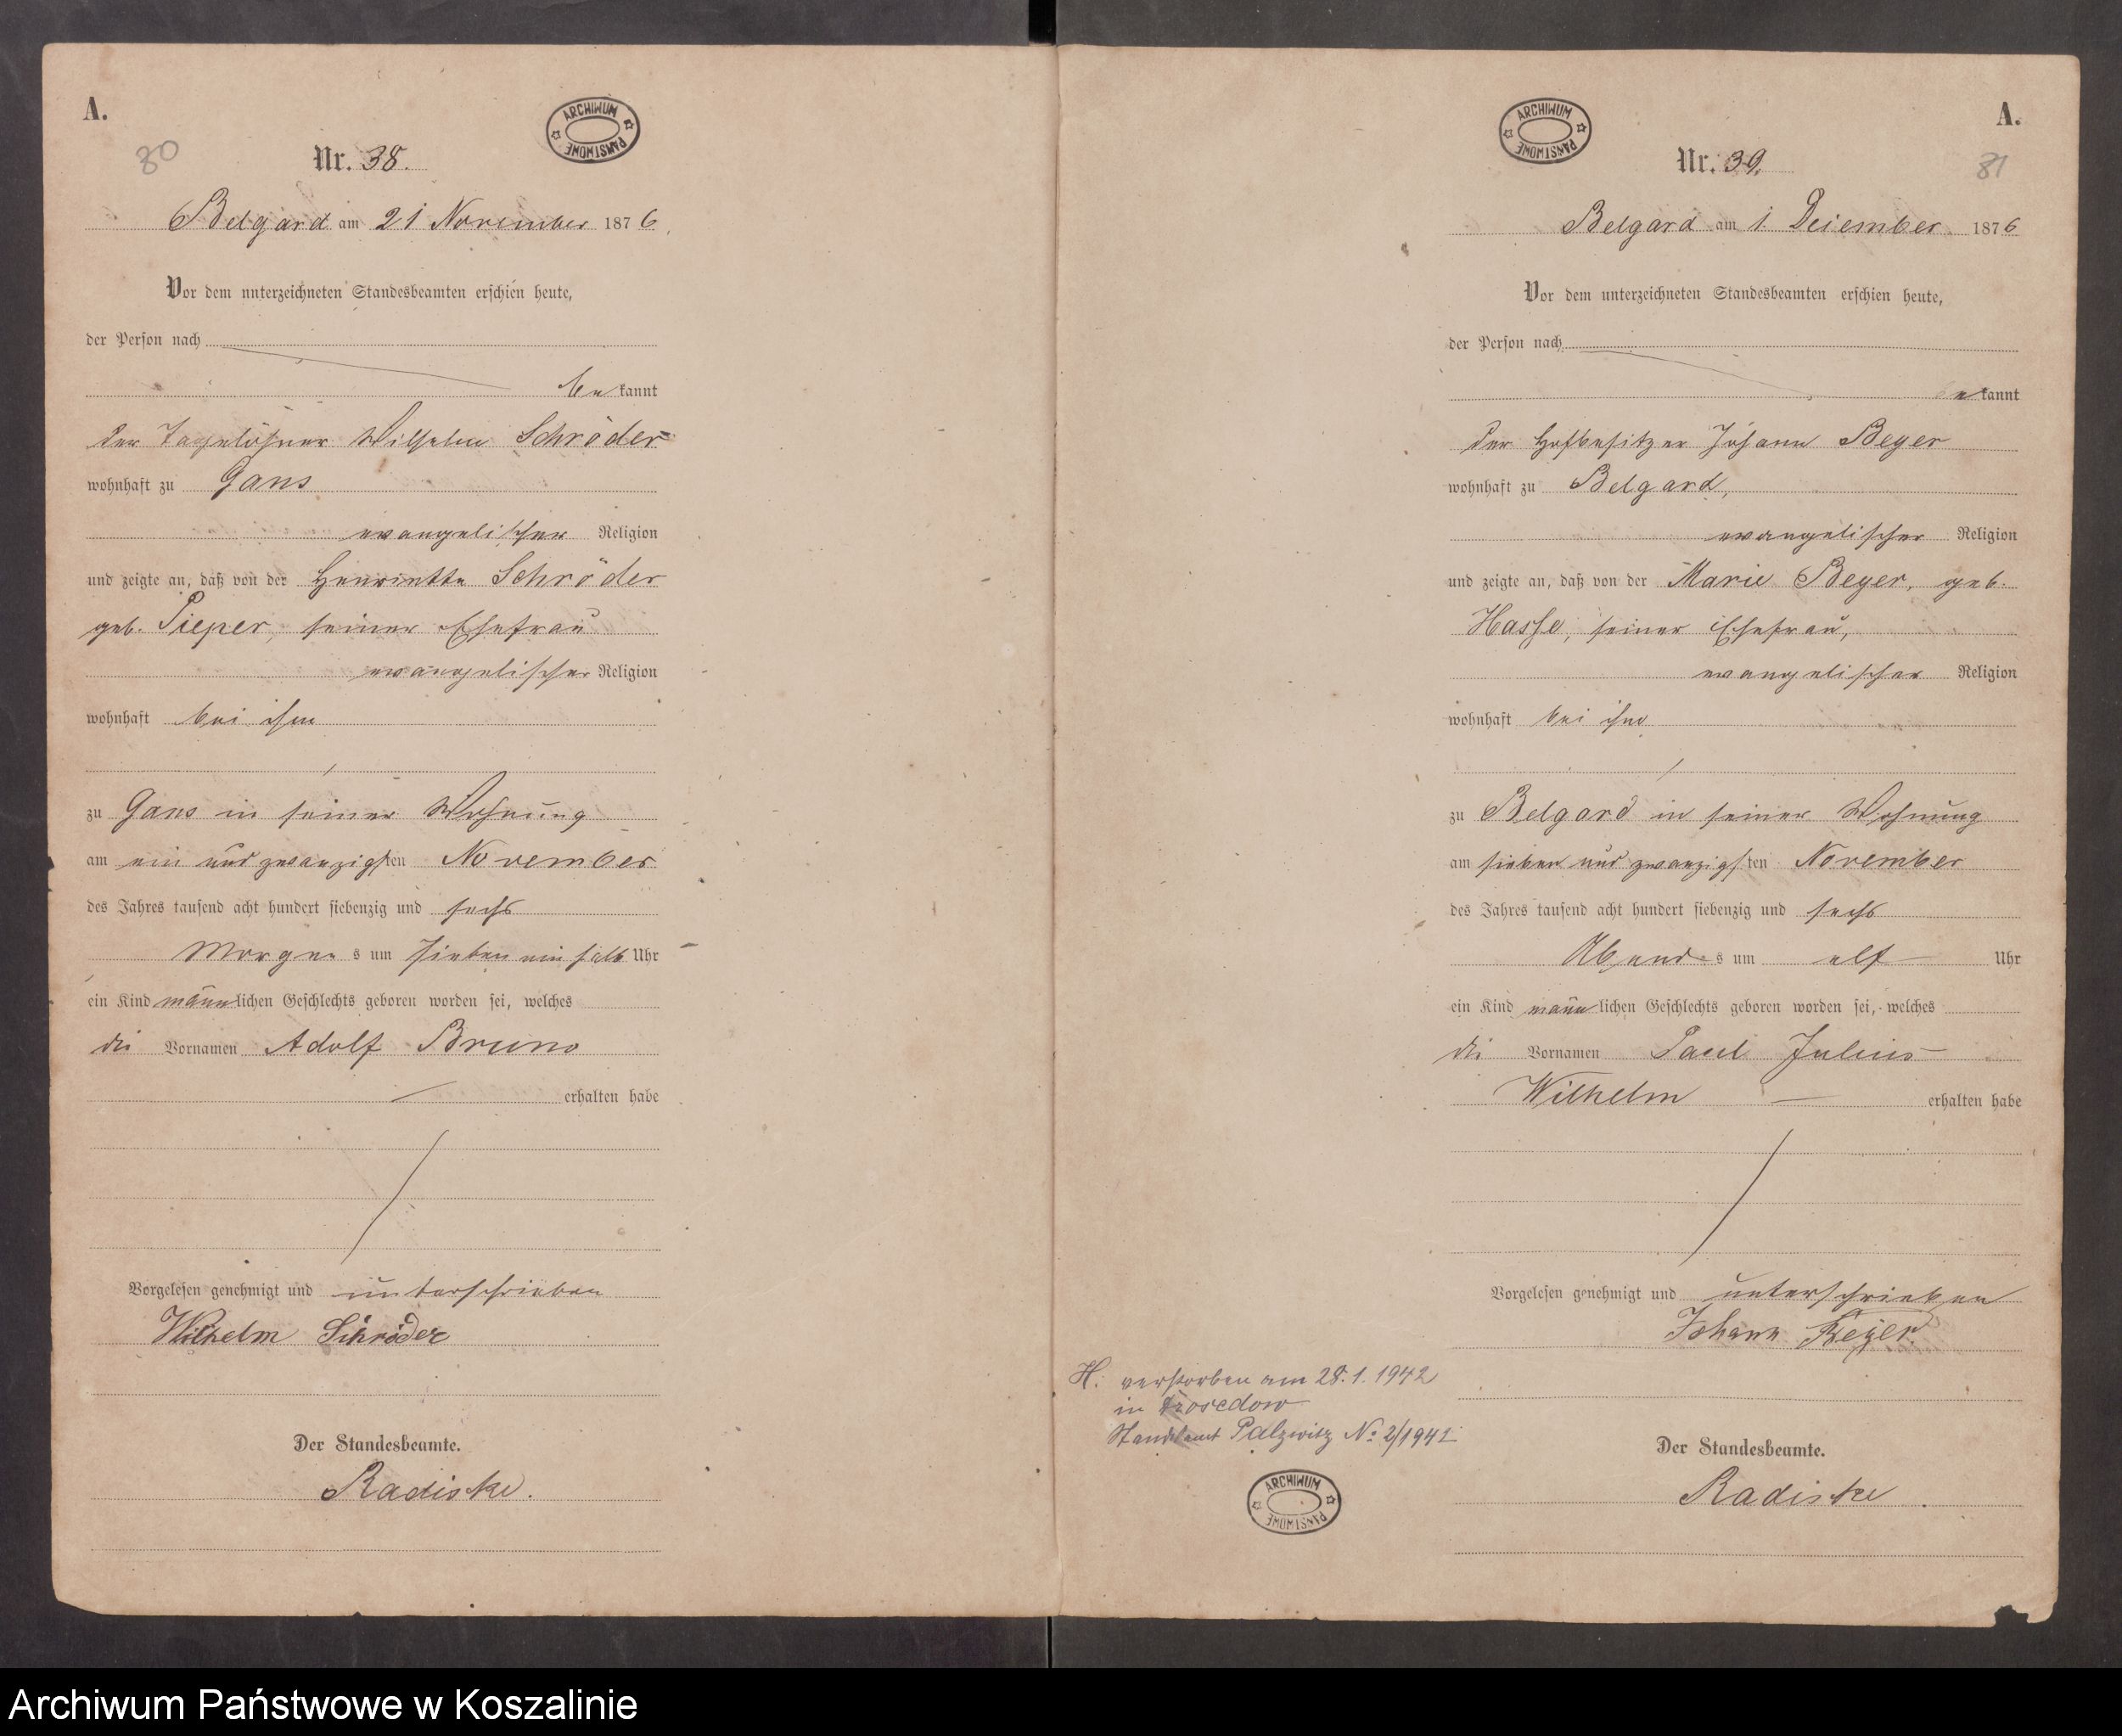 A.
ARCHIWUM PAŃSTWOWE
80
Nr. 38.
Belgard am 21 November 1876.
Vor dem unterzeichneten Standesbeamten erschien heute,
der Person nach
bekannt
der Tagelöhner Wilhelm Schröder
wohnhaft zu Gans
evangelischer Religion
und zeigte an, daß von der Henriette Schröder
geb. Pieper, seiner Ehefrau
evangelischer Religion
wohnhaft bei ihm
zu Gans in seiner Wohnung
am ein und zwanzigsten November
des Jahres tausend acht hundert siebenzig und sechs
Morgens um sieben ein halb Uhr
ein Kind männlichen Geschlechts geboren worden sei, welches
die Vornamen Adolf Bruno
erhalten habe
Vorgelesen genehmigt und unterschrieben
Wilhelm Schröder
Der Standesbeamte.
Radiske.
ARCHIWUM PAŃSTWOWE
A.
Nr. 39.
81
Belgard am 1. Dezember 1876
Vor dem unterzeichneten Standesbeamten erschien heute,
der Person nach
bekannt
der Hofbesitzer Johann Beyer
wohnhaft zu Belgard,
evangelischer Religion
und zeigte an, daß von der Marie Beyer, geb.
Hasse, seiner Ehefrau,
evangelischer Religion
wohnhaft bei ihm
zu Belgard in seiner Wohnung
am sieben und zwanzigsten November
des Jahres tausend acht hundert siebenzig und sechs
Abends um elf Uhr
ein Kind männlichen Geschlechts geboren worden sei, welches
die Vornamen Paul Julius
Wilhelm erhalten habe
Vorgelesen genehmigt und unterschrieben
Johann Beyer.
H. verstorben am 28.1.1942
in
Standesamt Palzwitz No 2/1942
ARCHIWUM PAŃSTWOWE
Der Standesbeamte.
Radiske.
Archiwum Państwowe w Koszalinie